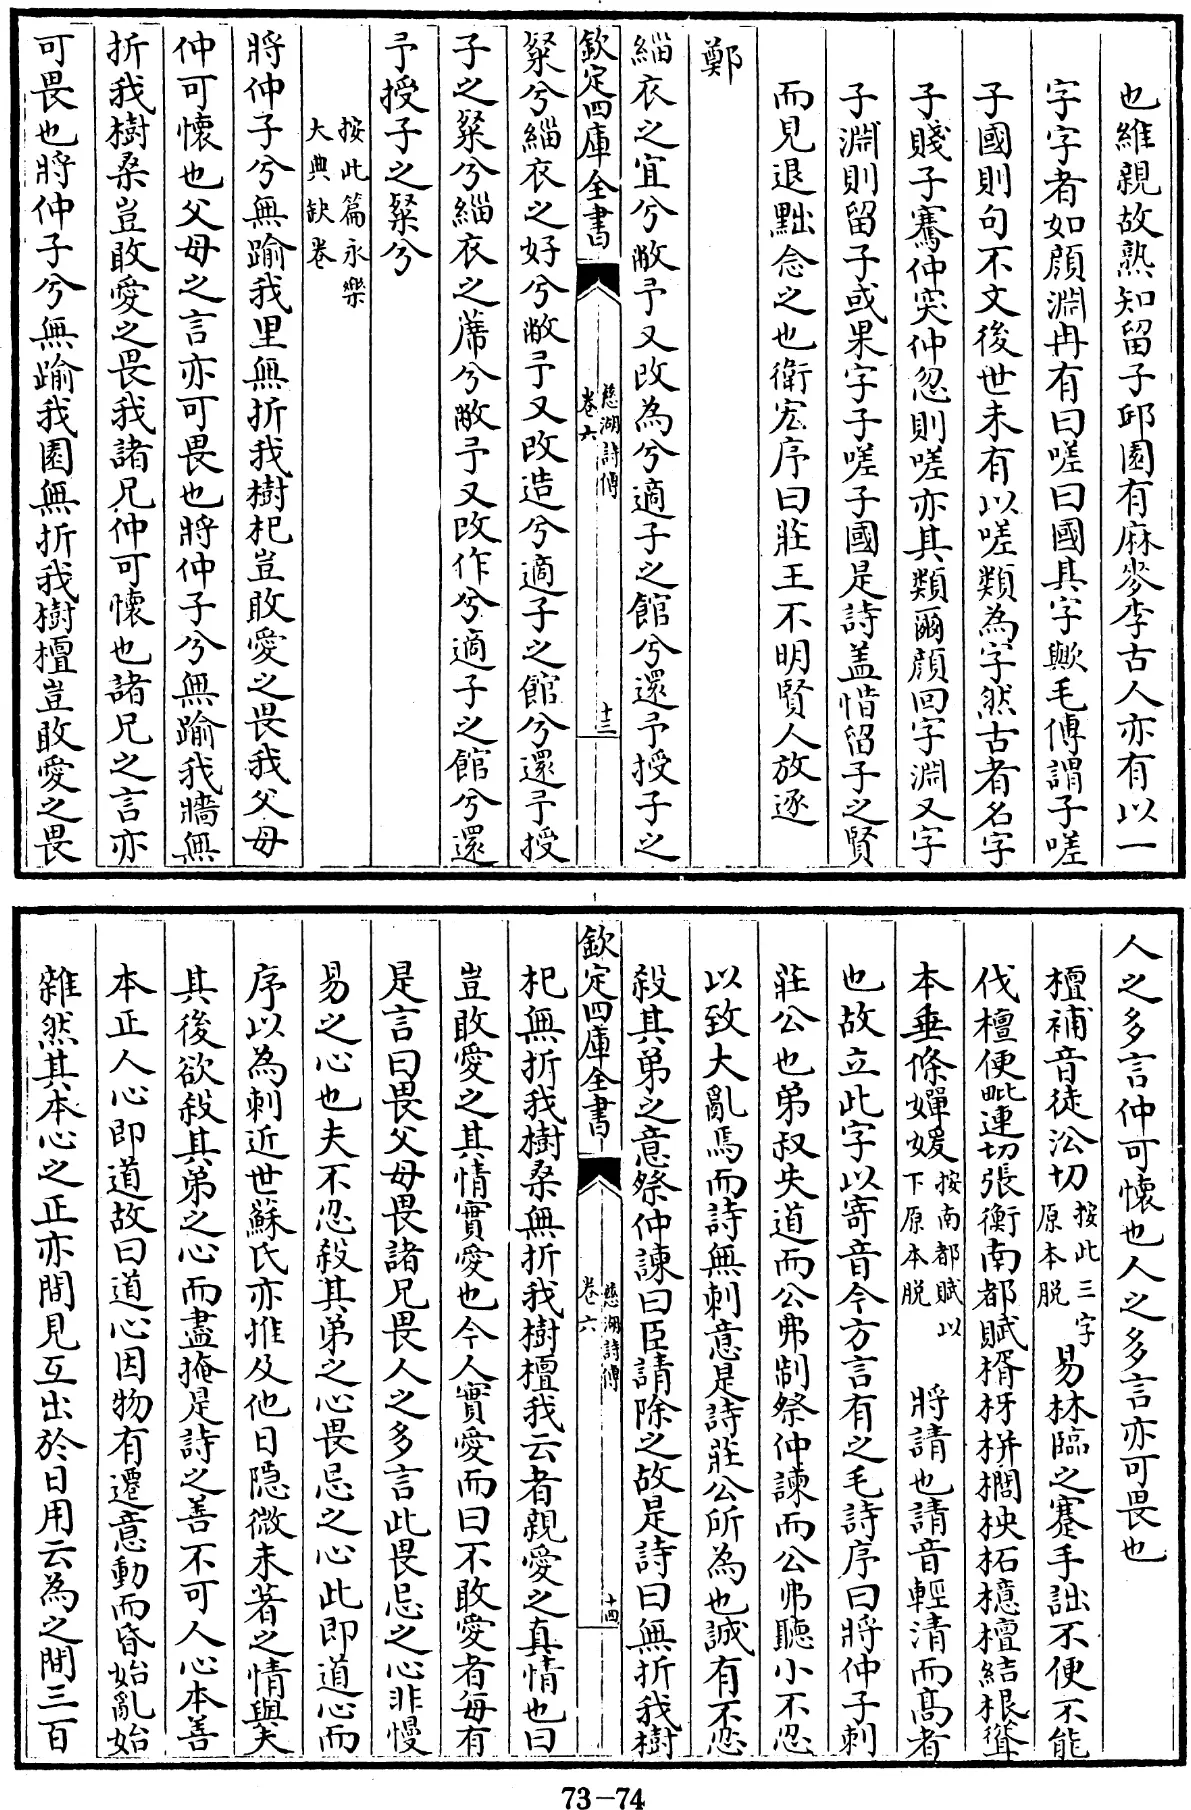 也維親故熟知留子邱園有麻麥李古人亦有以一
字字者如顔淵冉有曰嗟曰國其字歟毛傳謂子嗟
子國則句不文後世未有以嗟類為字然古者名字
子賤子騫仲突仲忽則嗟亦其類爾顔回字淵又字
子淵則留子或果字子嗟子國是詩盖惜留子之賢
而見退黜念之也衛宏序曰莊王不明賢人放逐
鄭
緇衣之宜兮敝予又改為兮適子之館兮還予授子之
欽定四庫全書
慈湖詩傳
卷六
十三
粲兮緇衣之好兮敝予又改造兮適子之館兮還予授
子之粲兮緇衣之蓆兮敝予又改作兮適子之館兮還
予授子之粲兮
按此篇永樂
大典缺卷
將仲子兮無踰我里無折我樹杞豈敢愛之畏我父母
仲可懷也父母之言亦可畏也將仲子兮無踰我牆無
折我樹桑豈敢愛之畏我諸兄仲可懷也諸兄之言亦
可畏也將仲子兮無踰我園無折我樹檀豈敢愛之畏
人之多言仲可懷也人之多言亦可畏也
檀補音徒沿切按此三字原本脱易林臨之蹇手詘不便不能
伐檀便毗連切張衡南都賦楈枒栟櫚柍柘檍檀結根聳
本垂條嬋媛按南都賦以下原本脱將請也請音輕清而髙者
也故立此字以寄音今方言有之毛詩序曰將仲子刺
莊公也弟叔失道而公弗制祭仲諫而公弗聽小不忍
以致大亂焉而詩無刺意是詩莊公所為也誠有不忍
殺其弟之意祭仲諫曰臣請除之故是詩曰無折我樹
欽定四庫全書
慈湖詩傳
卷六
十四
杞無折我樹桑無折我樹檀我云者親愛之真情也曰
豈敢愛之其情實愛也今人實愛而曰不敢愛者每有
是言曰畏父母畏諸兄畏人之多言此畏忌之心非慢
易之心也夫不忍殺其弟之心畏忌之心此即道心而
序以為刺近世蘇氏亦推及他日隠微未著之情與夫
其後欲殺其弟之心而盡掩是詩之善不可人心本善
本正人心即道故曰道心因物有遷意動而昏始亂始
雜然其本心之正亦間見互出於日用云為之間三百
73-74